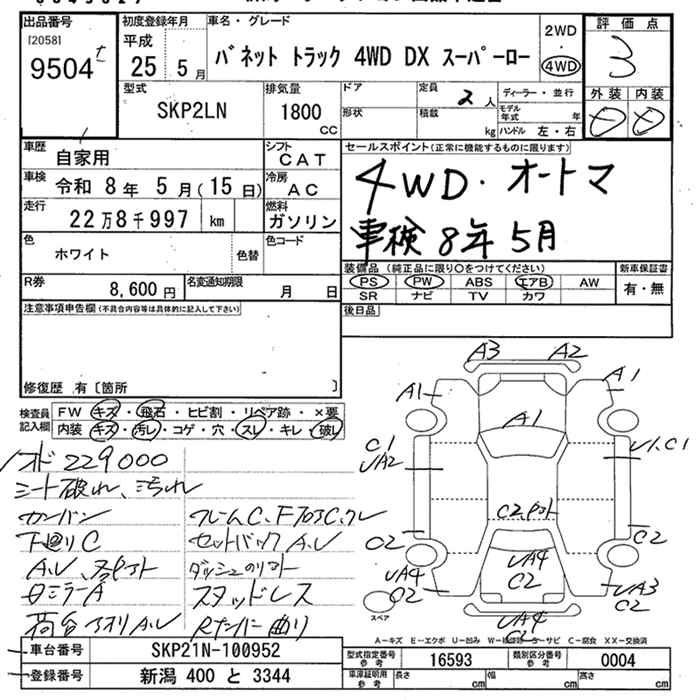 出品番号
[2058]
9504 t
初度登録年月
平成
25 5月
車名・グレード
バネット トラック 4WD DX スーパーロー
2WD
・
4WD
評価点
3
外装 内装
型式
SKP2LN
排気量
1800
CC
ドア
形状
定員
2人
積載
kg
ディーラー・並行
モデル年式 年
ハンドル 左・右
車歴
自家用
シフト
CAT
車検
令和 8年 5月(15日)
冷房
AC
走行
22万8千997 km
燃料
ガソリン
色
ホワイト
色替
色コード
R券
8,600円
名変通知期限
月 日
セールスポイント(正常に機能するものに限ります)
4WD・オートマ
車検 8年 5月
装備品(純正品に限り○をつけてください)
PS PW ABS エアB AW
SR ナビ TV カワ
新車保証書
有・無
後日品
注意事項申告欄(不具合内容等は具体的に記入して下さい)
修復歴 有〔箇所 〕
検査員
記入欄
FW キズ・飛石・ヒビ割・リペア跡・×要
内装 キズ・汚レ・コゲ・穴・スレ・キレ・破レ
229000
シート破れ、汚れ
カンバン
下廻りC
セットバックA.U
スタッドレス
荷台アオリA.U
Rナンバー曲り
A3 A2
A1 A1
A1
C1
UA2
U1.C1
C2
C2
C2
UA4
C2
UA4
C2
UA3
C2
UA4
C2
スペア
A-キズ E-エクボ U-凹み W-補修跡 S-サビ C-腐食 XX-交換済
車台番号
SKP21N-100952
登録番号
新潟 400 と 3344
型式指定番号
参考
16593
類別区分番号
参考
0004
車庫証明用
参考
長さ cm
幅 cm
高さ cm